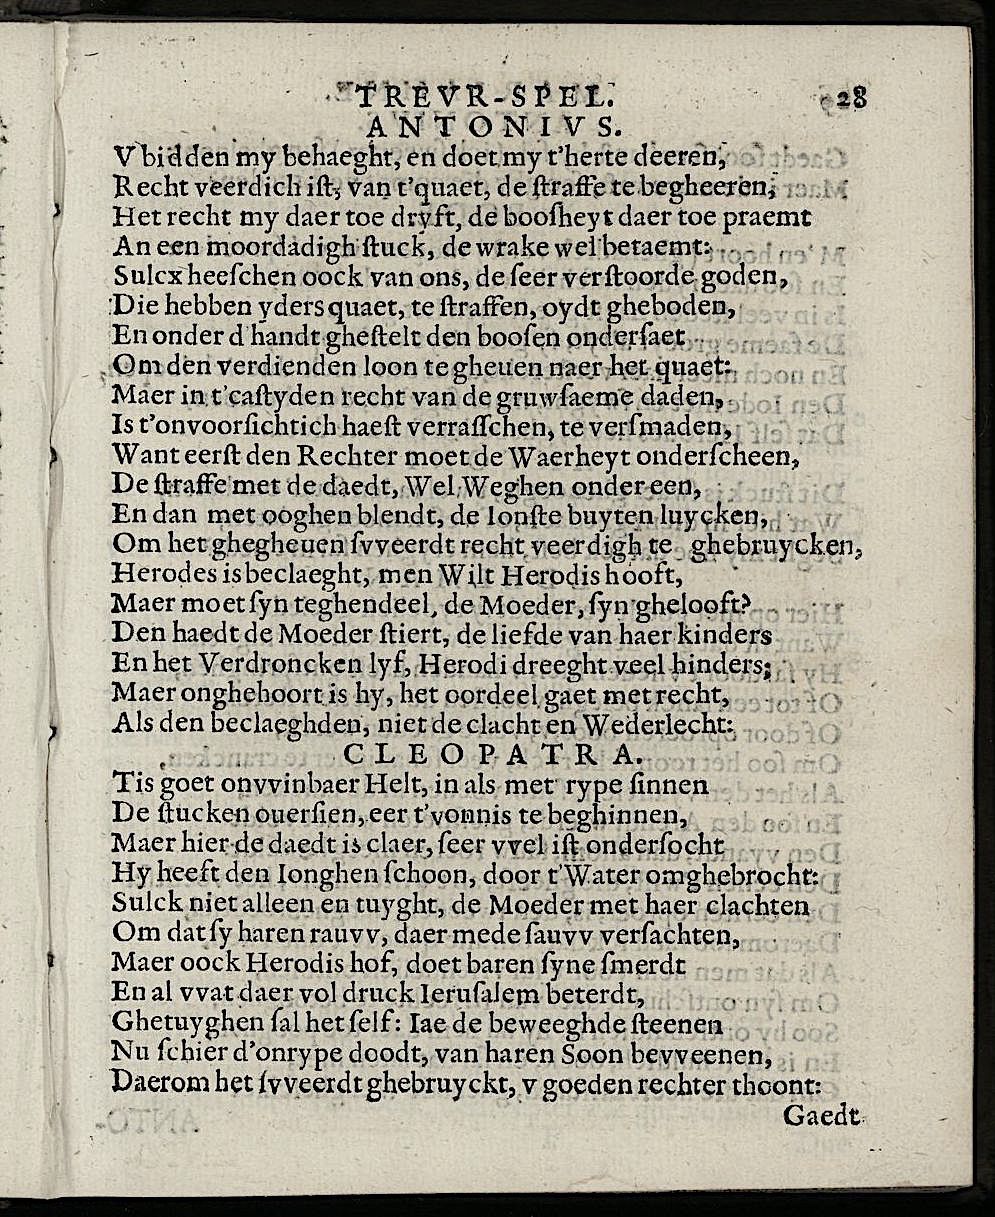 TREVR-SPEL. 28
ANTONIVS.
V bidden my behaeght, en doet my t'herte deeren,
Recht veerdich iſt, van t'quaet, de ſtraffe te begheeren,
Het recht my daer toe dryft, de booſheyt daer toe praemt
An een moordadigh ſtuck, de wrake wel betaemt:
Sulcx heeſchen oock van ons, de ſeer verſtoorde goden,
Die hebben yders quaet, te ſtraffen, oydt gheboden,
En onder d'handt gheſtelt den booſen onderſaet
Om den verdienden loon te gheuen naer het quaet:
Maer in t'caſtyden recht van de gruwſaeme daden,
Is t'onvoorſichtich haeſt verraſſchen, te verſmaden,
Want eerſt den Rechter moet de Waerheyt onderſcheen,
De ſtraffe met de daedt, Wel Weghen onder een,
En dan met ooghen blendt, de Ionſte buyten luycken,
Om het ghegheuen ſvveerdt recht veerdigh te ghebruycken,
Herodes is beclaeght, men Wilt Herodis hooft,
Maer moet ſyn teghendeel, de Moeder, ſyn ghelooft?
Den haedt de Moeder ſtiert, de liefde van haer kinders
En het Verdroncken lyf, Herodi dreeght veel hinders;
Maer onghehoort is hy, het oordeel gaet met recht,
Als den beclaeghden, niet de clacht en Wederlecht:
CLEOPATRA.
Tis goet onvvinbaer Helt, in als met rype ſinnen
De ſtucken ouerſien, eer t'vonnis te beghinnen,
Maer hier de daedt is claer, ſeer vvel iſt onderſocht
Hy heeft den Ionghen ſchoon, door t'Water omghebrocht:
Sulck niet alleen en tuyght, de Moeder met haer clachten
Om dat ſy haren rauvv, daer mede ſauvv verſachten,
Maer oock Herodis hof, doet baren ſyne ſmerdt
En al vvat daer vol druck Ieruſalem beterdt,
Ghetuyghen ſal het ſelf: Iae de beweeghde ſteenen
Nu ſchier d'onrype doodt, van haren Soon bevveenen,
Daerom het ſvveerdt ghebruyckt, v goeden rechter thoont:
Gaedt